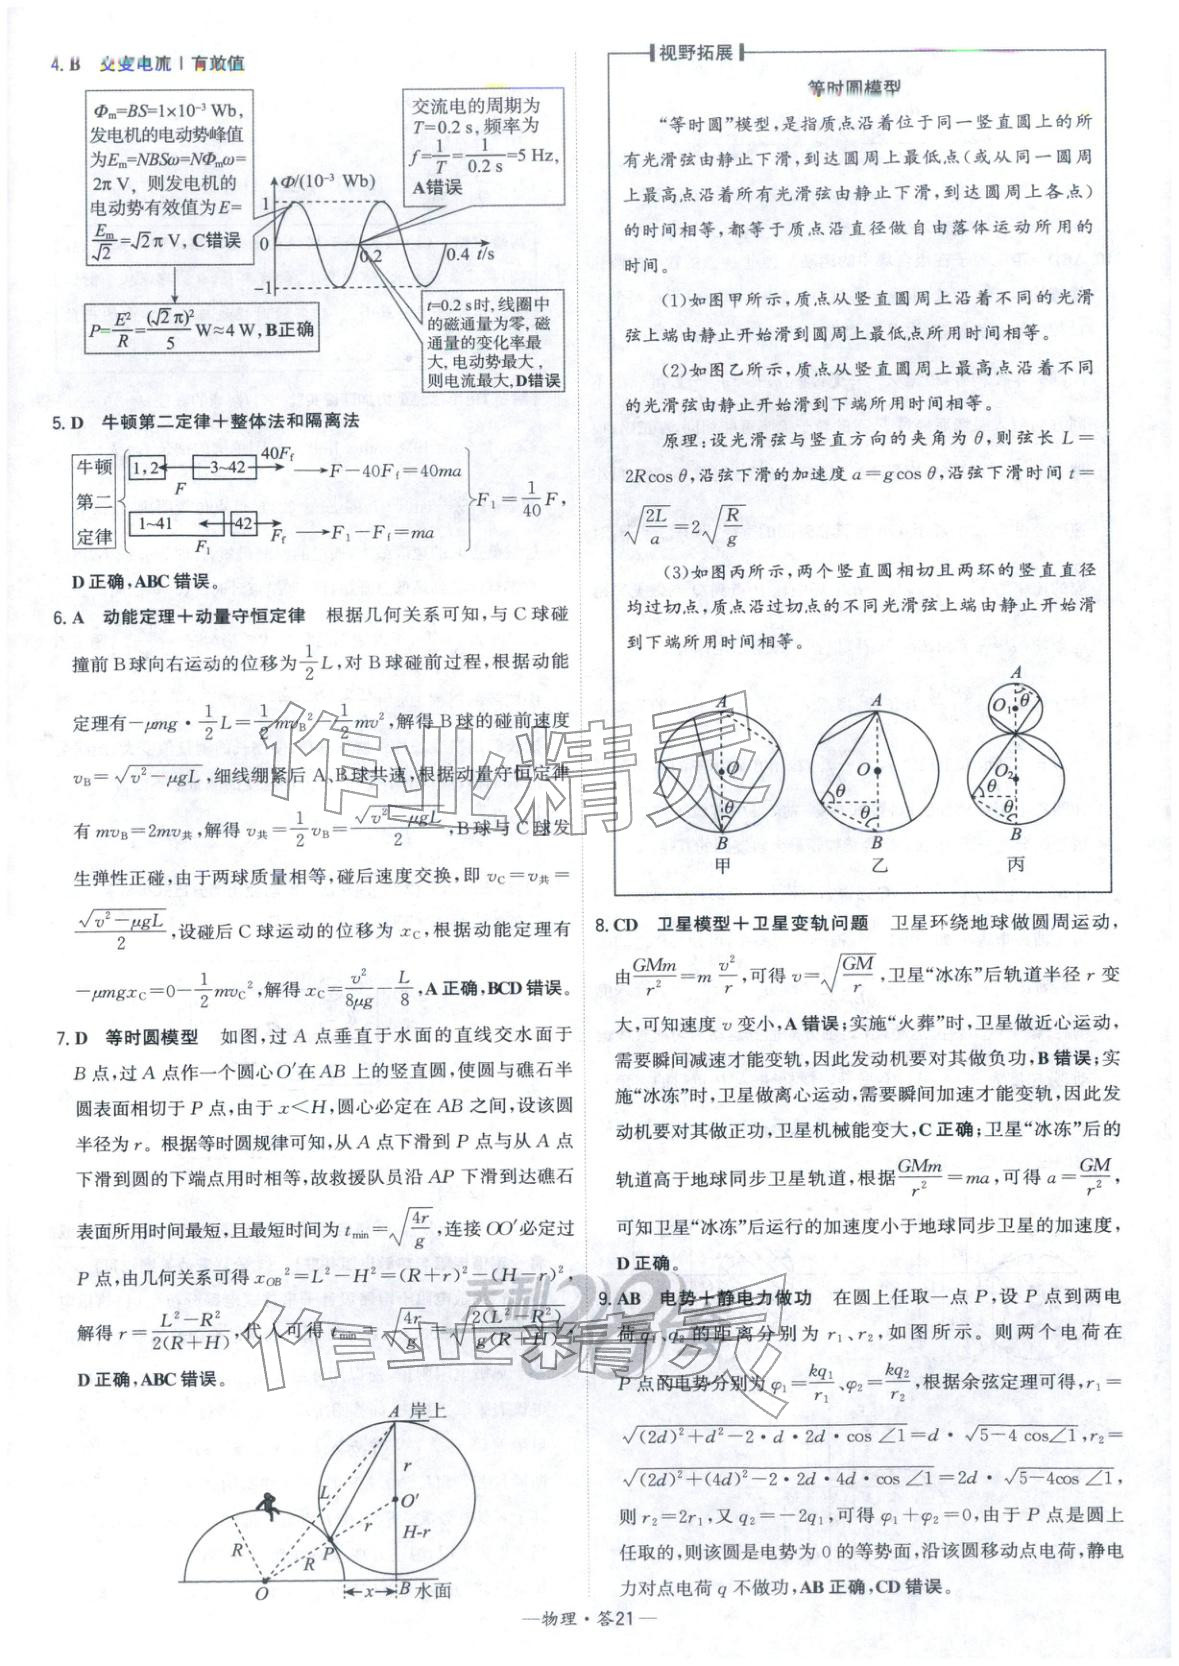 4. B 交变电流＋有效值
Φm=BS=1×10⁻³ Wb,
发电机的电动势峰值
为Em=NBSω=NΦmω=
2π V, 则发电机的
电动势有效值为E=
Em/√2=√2π V, C错误
Φ/(10⁻³ Wb)
1
0
−1
0.2
0.4 t/s
交流电的周期为
T=0.2 s, 频率为
f=1/T=1/0.2 s=5 Hz,
A错误
P=E²/R=(√2π)²/5 W≈4 W, B正确
t=0.2 s时, 线圈中
的磁通量为零, 磁
通量的变化率最
大, 电动势最大,
则电流最大, D错误
5. D 牛顿第二定律＋整体法和隔离法
牛顿
第二
定律
1,2 3~42 40Ff → F−40Ff=40ma
F
1~41 42 → F₁−Ff=ma
F₁ Ff
F₁=1/40 F,
D正确,ABC错误。
6. A 动能定理＋动量守恒定律 根据几何关系可知,与C球碰
撞前B球向右运动的位移为1/2 L,对B球碰前过程,根据动能
定理有−μmg·1/2 L=1/2 mvB²−1/2 mv²,解得B球的碰前速度
vB=√(v²−μgL),细线绷紧后A、B球共速,根据动量守恒定律
有mvB=2mv共,解得v共=1/2 vB=√(v²−μgL)/2,B球与C球发
生弹性正碰,由于两球质量相等,碰后速度交换,即vC=v共=
√(v²−μgL)/2,设碰后C球运动的位移为xC,根据动能定理有
−μmgxC=0−1/2 mvC²,解得xC=v²/8μg−L/8,A正确,BCD错误。
7. D 等时圆模型 如图,过A点垂直于水面的直线交水面于
B点,过A点作一个圆心O′在AB上的竖直圆,使圆与礁石半
圆表面相切于P点,由于x<H,圆心必定在AB之间,设该圆
半径为r。根据等时圆规律可知,从A点下滑到P点与从A点
下滑到圆的下端点用时相等,故救援队员沿AP下滑到达礁石
表面所用时间最短,且最短时间为tmin=√(4r/g),连接OO′必定过
P点,由几何关系可得xOB²=L²−H²=(R+r)²−(H−r)²,
解得r=(L²−R²)/2(R+H),代入可得tmin=√(4r/g)=√(2(L²−R²)/g(R+H)),
D正确,ABC错误。
A 岸上
r
L
O′
r
H-r
P
R
R
O
x
B 水面
视野拓展
等时圆模型
“等时圆”模型,是指质点沿着位于同一竖直圆上的所
有光滑弦由静止下滑,到达圆周上最低点(或从同一圆周
上最高点沿着所有光滑弦由静止下滑,到达圆周上各点)
的时间相等,都等于质点沿直径做自由落体运动所用的
时间。
(1)如图甲所示,质点从竖直圆周上沿着不同的光滑
弦上端由静止开始滑到圆周上最低点所用时间相等。
(2)如图乙所示,质点从竖直圆周上最高点沿着不同
的光滑弦由静止开始滑到下端所用时间相等。
原理:设光滑弦与竖直方向的夹角为θ,则弦长L=
2Rcos θ,沿弦下滑的加速度a=gcos θ,沿弦下滑时间t=
√(2L/a)=2√(R/g)
(3)如图丙所示,两个竖直圆相切且两环的竖直直径
均过切点,质点沿过切点的不同光滑弦上端由静止开始滑
到下端所用时间相等。
A
O
θ
B
甲
A
O
θ
θ
B
乙
A
O₁ θ
O₂
θ
θ
B
丙
8. CD 卫星模型＋卫星变轨问题 卫星环绕地球做圆周运动,
由GMm/r²=m v²/r,可得v=√(GM/r),卫星“冰冻”后轨道半径r变
大,可知速度v变小,A错误;实施“火葬”时,卫星做近心运动,
需要瞬间减速才能变轨,因此发动机要对其做负功,B错误;实
施“冰冻”时,卫星做离心运动,需要瞬间加速才能变轨,因此发
动机要对其做正功,卫星机械能变大,C正确;卫星“冰冻”后的
轨道高于地球同步卫星轨道,根据GMm/r²=ma,可得a=GM/r²,
可知卫星“冰冻”后运行的加速度小于地球同步卫星的加速度,
D正确。
9. AB 电势＋静电力做功 在圆上任取一点P,设P点到两电
荷q₁、q₂的距离分别为r₁、r₂,如图所示。则两个电荷在
P点的电势分别为φ₁=kq₁/r₁、φ₂=kq₂/r₂,根据余弦定理可得,r₁=
√((2d)²+d²−2·d·2d·cos∠1)=d·√(5−4cos∠1),r₂=
√((2d)²+(4d)²−2·2d·4d·cos∠1)=2d·√(5−4cos∠1),
则r₂=2r₁,又q₂=−2q₁,可得φ₁+φ₂=0,由于P点是圆上
任取的,则该圆是电势为0的等势面,沿该圆移动点电荷,静电
力对点电荷q不做功,AB正确,CD错误。
—物理·答21—
作业精灵
天利38套
作业精灵